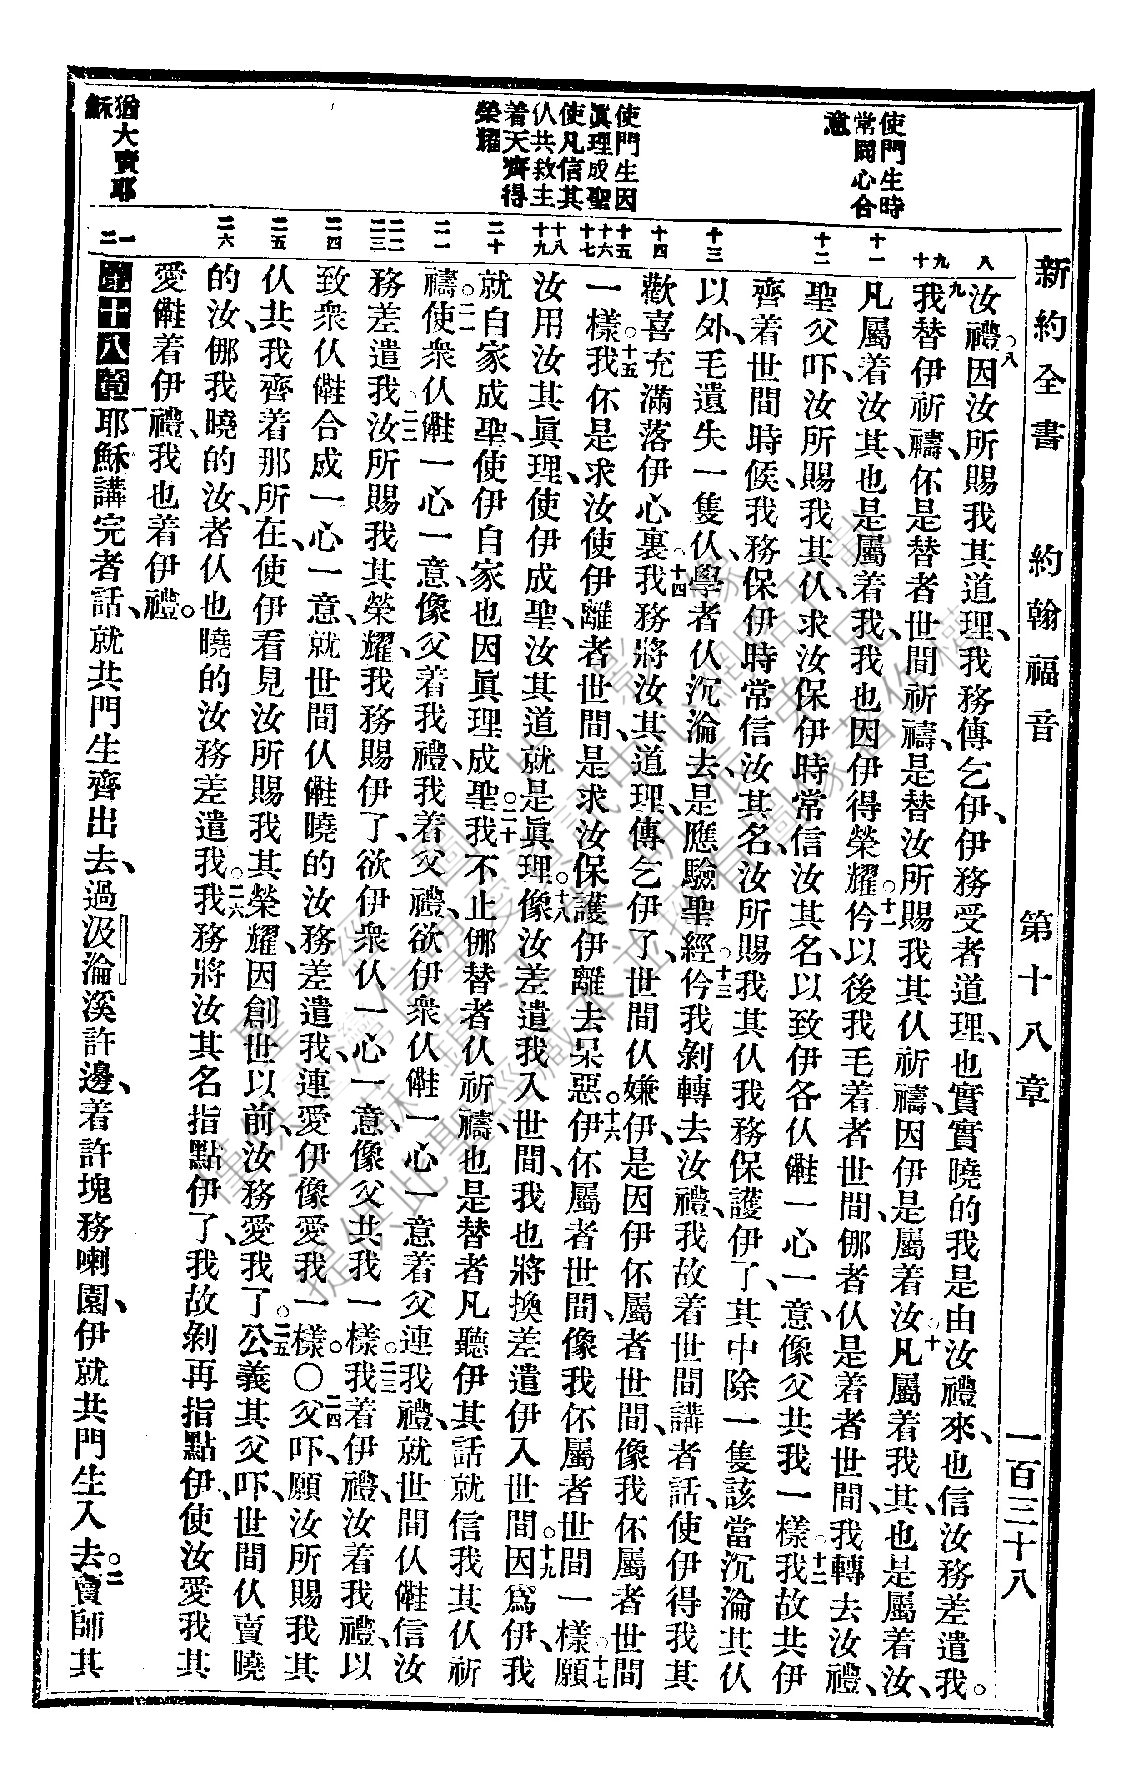 新約全書　約翰福音　第十八章　一百三十八
使門生時
常同心合
意
使門生因
眞理成聖
使凡信其
仈共救主
着天齊得
榮耀
猶大賣耶
穌
八
九
十
十一
十二
十三
十四
十五
十六
十七
十八
十九
二十
二一
二二
二三
二四
二五
二六
一
二
汝禮、○八因汝所賜我其道理、我務傳乞伊、伊務受者道理、也實實曉的我是由汝禮來、也信汝務差遣我。
九我替伊祈禱、伓是替者世間祈禱、是替汝所賜我其仈祈禱、因伊是屬着汝、○十凡屬着我其、也是屬着汝、
凡屬着汝其、也是屬着我、我也因伊得榮耀。○十一仱以後我毛着者世間、倻者仈是着者世間、我轉去汝禮、
聖父吓、汝所賜我其仈、求汝保伊時常信汝其名、以致伊各仈儺一心一意、像父共我一樣。○十二我故共伊
齊着世間時候、我務保伊時常信汝其名、汝所賜我其仈、我務保護伊了、其中除一隻該當沉淪其仈
以外、毛遺失一隻仈、學者仈沉淪去、是應驗聖經。○十三仱我剝轉去汝禮、我故着世間講者話、使伊得我其
歡喜充滿落伊心裏。○十四我務將汝其道理、傳乞伊了、世間仈嫌伊、是因伊伓屬者世間、像我伓屬者世間
一樣。○十五我伓是求汝使伊離者世間、是求汝保護伊離去呆惡。○十六伊伓屬者世間、像我伓屬者世間一樣。○十七願
汝用汝其眞理、使伊成聖、汝其道就是眞理。○十八像汝差遣我入世間、我也將換差遣伊入世間。○十九因爲伊、我
就自家成聖、使伊自家也因眞理成聖。○二十我不止倻替者仈祈禱、也是替者凡聽伊其話就信我其仈祈
禱、○二一使衆仈儺一心一意、像父着我禮、我着父禮、欲伊衆仈儺一心一意着父連我禮、就世間仈儺信汝
務差遣我。○二二汝所賜我其榮耀、我務賜伊了、欲伊衆仈一心一意、像父共我一樣。○二三我着伊禮、汝着我禮、以
致衆仈儺合成一心一意、就世間仈儺曉的汝務差遣我、連愛伊像愛我一樣。○二四父吓、願汝所賜我其
仈共我齊着那所在、使伊看見汝所賜我其榮耀、因創世以前、汝務愛我了。○二五公義其父吓、世間仈賣曉
的汝、倻我曉的汝、者仈也曉的汝務差遣我。○二六我務將汝其名指點伊了、我故剝再指點伊、使汝愛我其
愛儺着伊禮、我也着伊禮。
第十八章一耶穌講完者話、就共門生齊出去、過汲淪溪許邊、着許塊務喇園、伊就共門生入去。○二賣師其